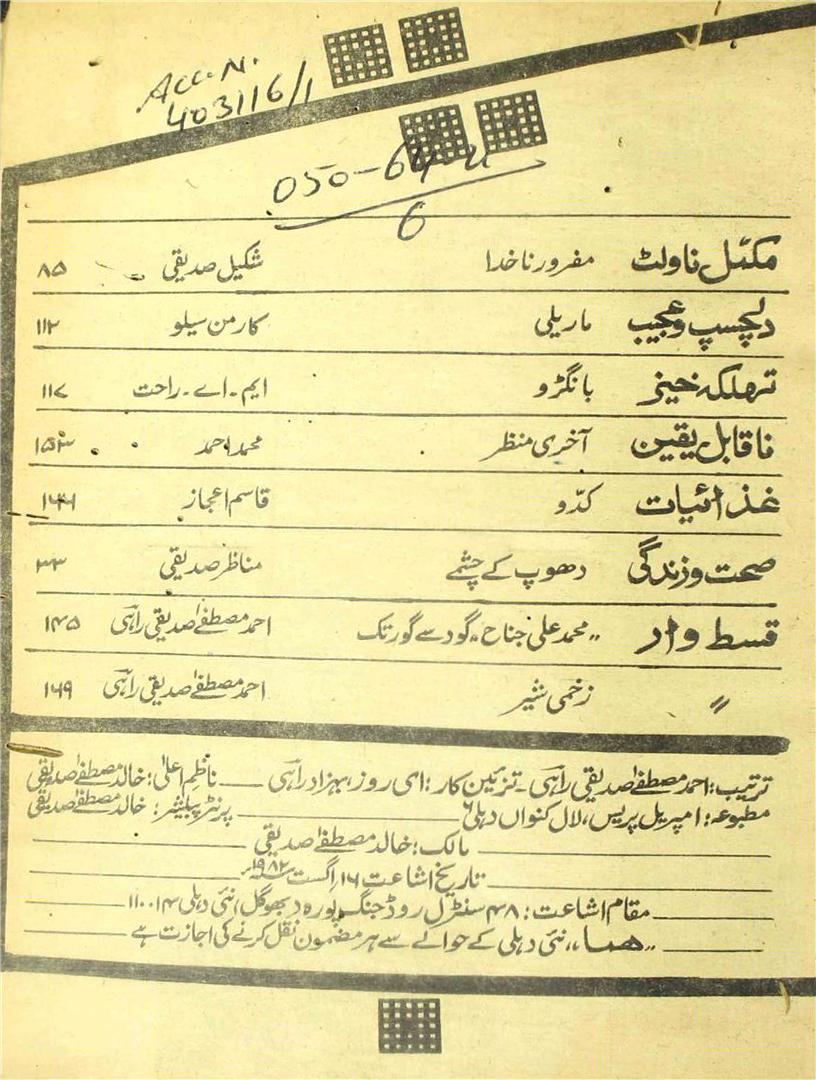 Acc. N.
403116/1
050-64
6
مکمّل ناولٹ مفرور ناخدا شکیل صدیقی ۸۵
دلچسپ و عجیب ماریلی کارمن سیلو ۱۱۲
تہلکہ خیز بانگڑو ایم۔اے۔راحت ۱۱۷
ناقابل یقین آخری منظر محمد احمد ۱۵۳
غذائیات کدّو قاسم اعجاز
صحت و زندگی دھوپ کے چشمے مناظر صدیقی ۳۳
قسط وار ,,محمد علی جناح،، گود سے گور تک احمد مصطفےٰ صدیقی راہی ۱۴۵
〃 زخمی شیر احمد مصطفےٰ صدیقی راہی ۱۶۹
ترتیب: احمد مصطفےٰ صدیقی راہی۔ تزئین کار: ای روز، بہزاد راہی ناظم اعلیٰ: خالد مصطفےٰ صدیقی
مطبوعہ: امپیریل پریس، لال کنواں دہلی ۶ پرنٹر پبلیشر: خالد مصطفےٰ صدیقی
مالک: خالد مصطفےٰ صدیقی
تاریخ اشاعت ۱۶ اگست ۱۹۸۲ء
مقام اشاعت: ۴۸ سنٹرل روڈ جنگ پورہ، بھوگل، نئی دہلی ۱۱۰۰۱۴
,,ھما،، نئی دہلی کے حوالے سے ہر مضمون نقل کرنے کی اجازت ہے